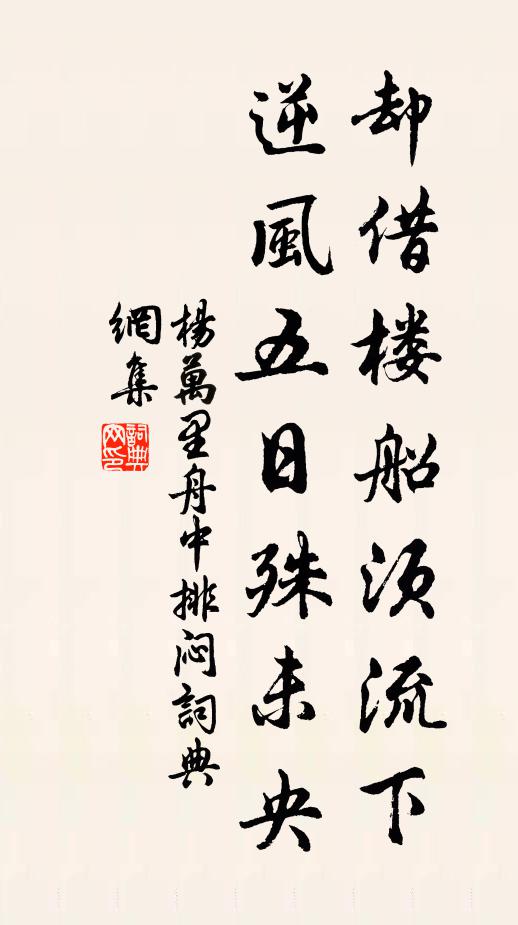 却借楼船顺流下
逆風五日殊未央
楊萬里舟中排闷詞典
網集
詞典
网印